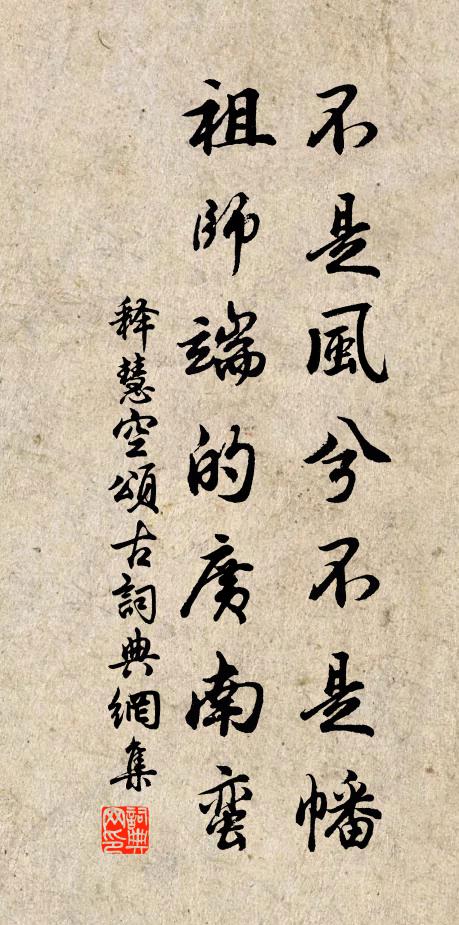 不是風兮不是幡
祖師端的廣南蛮
释慧空頌古詞典網集
詞典网印